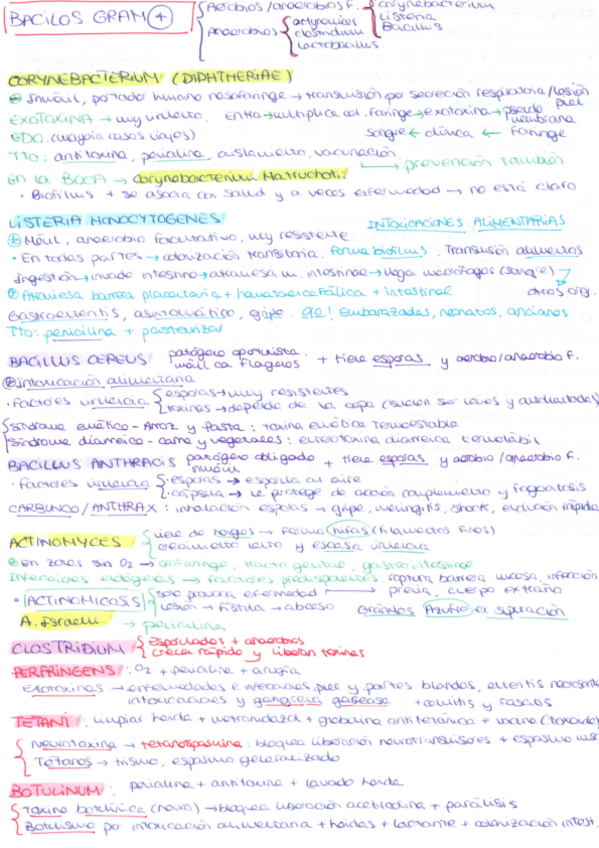 BACILOS GRAM +
Aerobios/anaerobios f. Corynebacterium
Listeria
Bacillus
Anaerobios actynomices
clostridium
Lactobacillus
CORYNEBACTERIUM (DIPHTHERIAE)
Inmóvil, portador humano nasofaringe → transmisión por secreción respiratoria/lesión piel
EXOTOXINA → muy virulento. Entra → multiplica col. faringe → exotoxina → pseudo membrana
EDO. (mayoría casos viajes) sangre ← clínica ← faringe
Tto: antitoxina, penicilina, aislamiento, vacunación
prevención también
En la BOCA → Corynebacterium Matruchotii
· Biofilms + se asocia con salud y a veces enfermedad → no está claro
LISTERIA MONOCYTOGENES INTOXICACIONES ALIMENTARIAS
+ Móvil, anaerobio facultativo, muy resistente
· En todas partes → colonización transitoria. Forma biofilms. Transmisión alimentos
Ingestión → invade intestino → atraviesa m. intestinal → llega macrófagos (sangre)
otros org.
Atraviesa barrera placentaria + hematoencefálica + intestinal
Gastroenteritis, asintomático, gripe. Embarazadas, neonatos, ancianos
Tto: penicilina + pasteurizar
BACILLUS CEREUS patógeno oportunista + tiene esporas y aerobio/anaerobio f.
móvil con flagelos
intoxicación alimentaria
· Factores virulencia esporas → muy resistentes
toxinas → depende de la cepa (suelen ser leves y autolimitadas)
Síndrome emético - Arroz y pasta: toxina emética termoestable
Síndrome diarreico - carne y vegetales: enterotoxina diarreica termolábil
BACILLUS ANTHRACIS patógeno obligado + tiene esporas y aerobio/anaerobio f.
inmóvil
· Factores virulencia · esporas → esporula al aire
· cápsula → le protege de acción complemento y fagocitosis
CARBUNCO/ANTHRAX: inhalación esporas → gripe, meningitis, shock, evolución rápida
ACTINOMYCES viene de hongos → forma hifas (filamentos finos)
crecimiento lento y escasa virulencia
en zonas sin O2 → orofaringe, tracto genital, gastrointestinal
Infecciones endógenas → factores predisponentes: ruptura barrera mucosa, infección
previa, cuerpo extraño
· ACTINOMICOSIS solo provoca enfermedad
Lesión → fístula → absceso Gránulos Azufre en supuración
A. Israelii → penicilina
CLOSTRIDIUM Esporulados + anaerobios
crecen rápido y liberan toxinas
PERFRINGENS: O2 + penicilina + cirugía
Exotoxinas → enfermedades e infecciones piel y partes blandas, enteritis necrosante
intoxicaciones y gangrena gaseosa. + celulitis y fascitis
TETANI: limpiar herida + metronidazol + globulina antitetánica + vacuna (toxoide)
Neurotoxina → tetanospasmina: bloquea liberación neurotransmisores + espasmo
Tétanos → trismo, espasmo generalizado
BOTULINUM: penicilina + antitoxina + lavado herida
Toxina botulínica (neuro) → bloquea liberación acetilcolina + parálisis
Botulismo por intoxicación alimentaria + heridas + lactante + colonización intest.